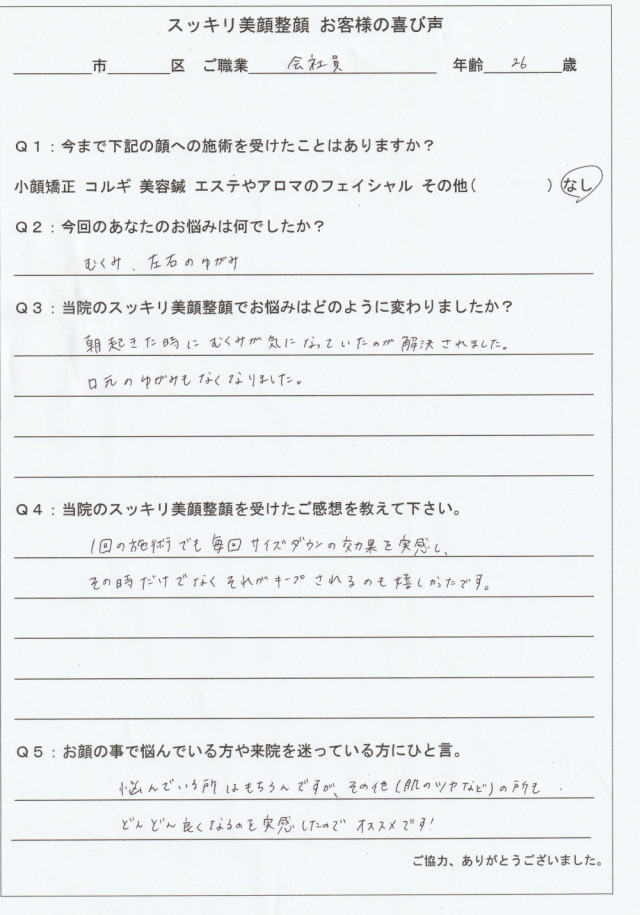 スッキリ美顔整顔 お客様の喜び声
市 区 ご職業 会社員 年齢 26 歳
Q1：今まで下記の顔への施術を受けたことはありますか？
小顔矯正 コルギ 美容鍼 エステやアロマのフェイシャル その他( ) なし
Q2：今回のあなたのお悩みは何でしたか？
むくみ、左右のゆがみ
Q3：当院のスッキリ美顔整顔でお悩みはどのように変わりましたか？
朝起きた時にむくみが気になっていたのが解決されました。
口元のゆがみもなくなりました。
Q4：当院のスッキリ美顔整顔を受けたご感想を教えて下さい。
1回の施術でも毎回サイズダウンの効果を実感し、
その時だけでなくそれがキープされるのも嬉しかったです。
Q5：お顔の事で悩んでいる方や来院を迷っている方にひと言。
悩んでいる所はもちろんですが、その他(肌のツヤなど)の所も
どんどん良くなるのを実感したのでオススメです!
ご協力、ありがとうございました。